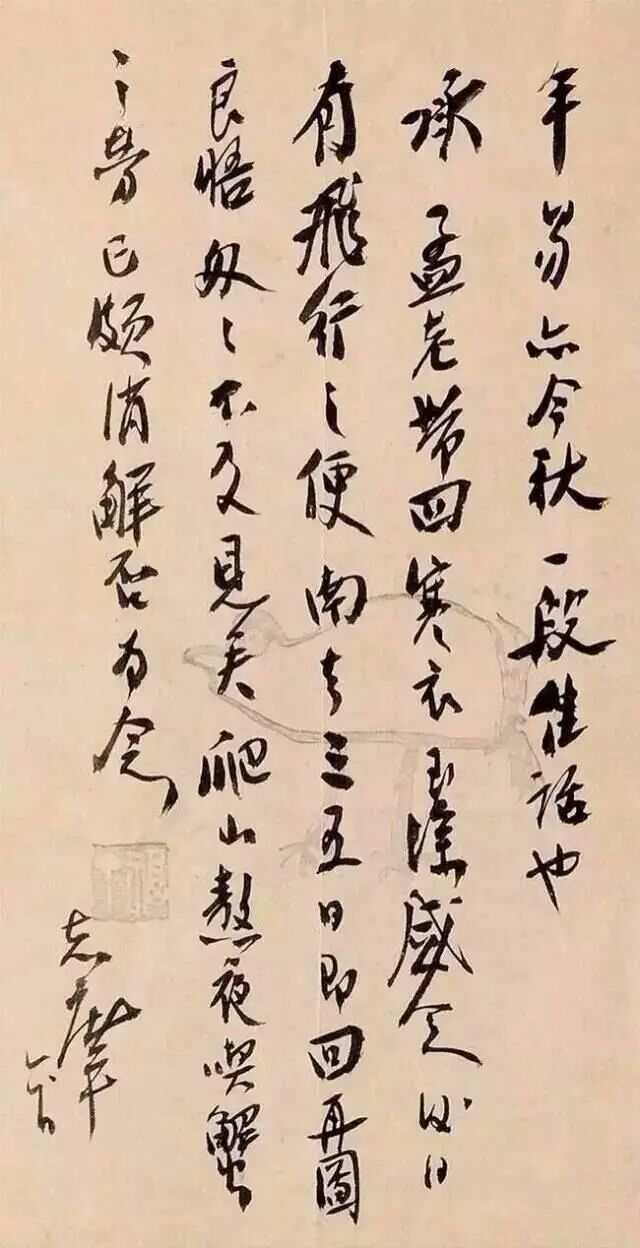 年亦今秋一段佳話也
承孟老帶回寒衣至深感念 日
有飛行之便南去三五日即回再圖
良晤匆匆不及見矣爬山熬夜喫蟹
之勞已頗消解否為念
志摩